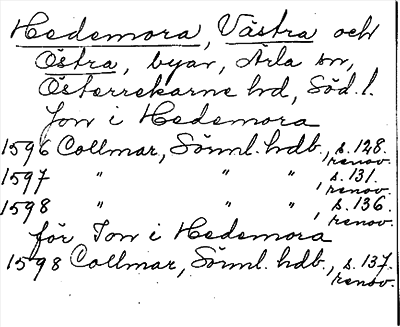 Hedemora, Västra och
Östra, byar, Ärla sn,
Österrekarne hd, Söd. l.
Jon i Hedemora
1596 Collmar, Sörml. hdb., s. 128. renov.
1597 " " ", s. 131. renov.
1598 " " ", s. 136. renov.
för Jon i Hedemora
1598 Collmar, Sörml. hdb., s. 137. renov.